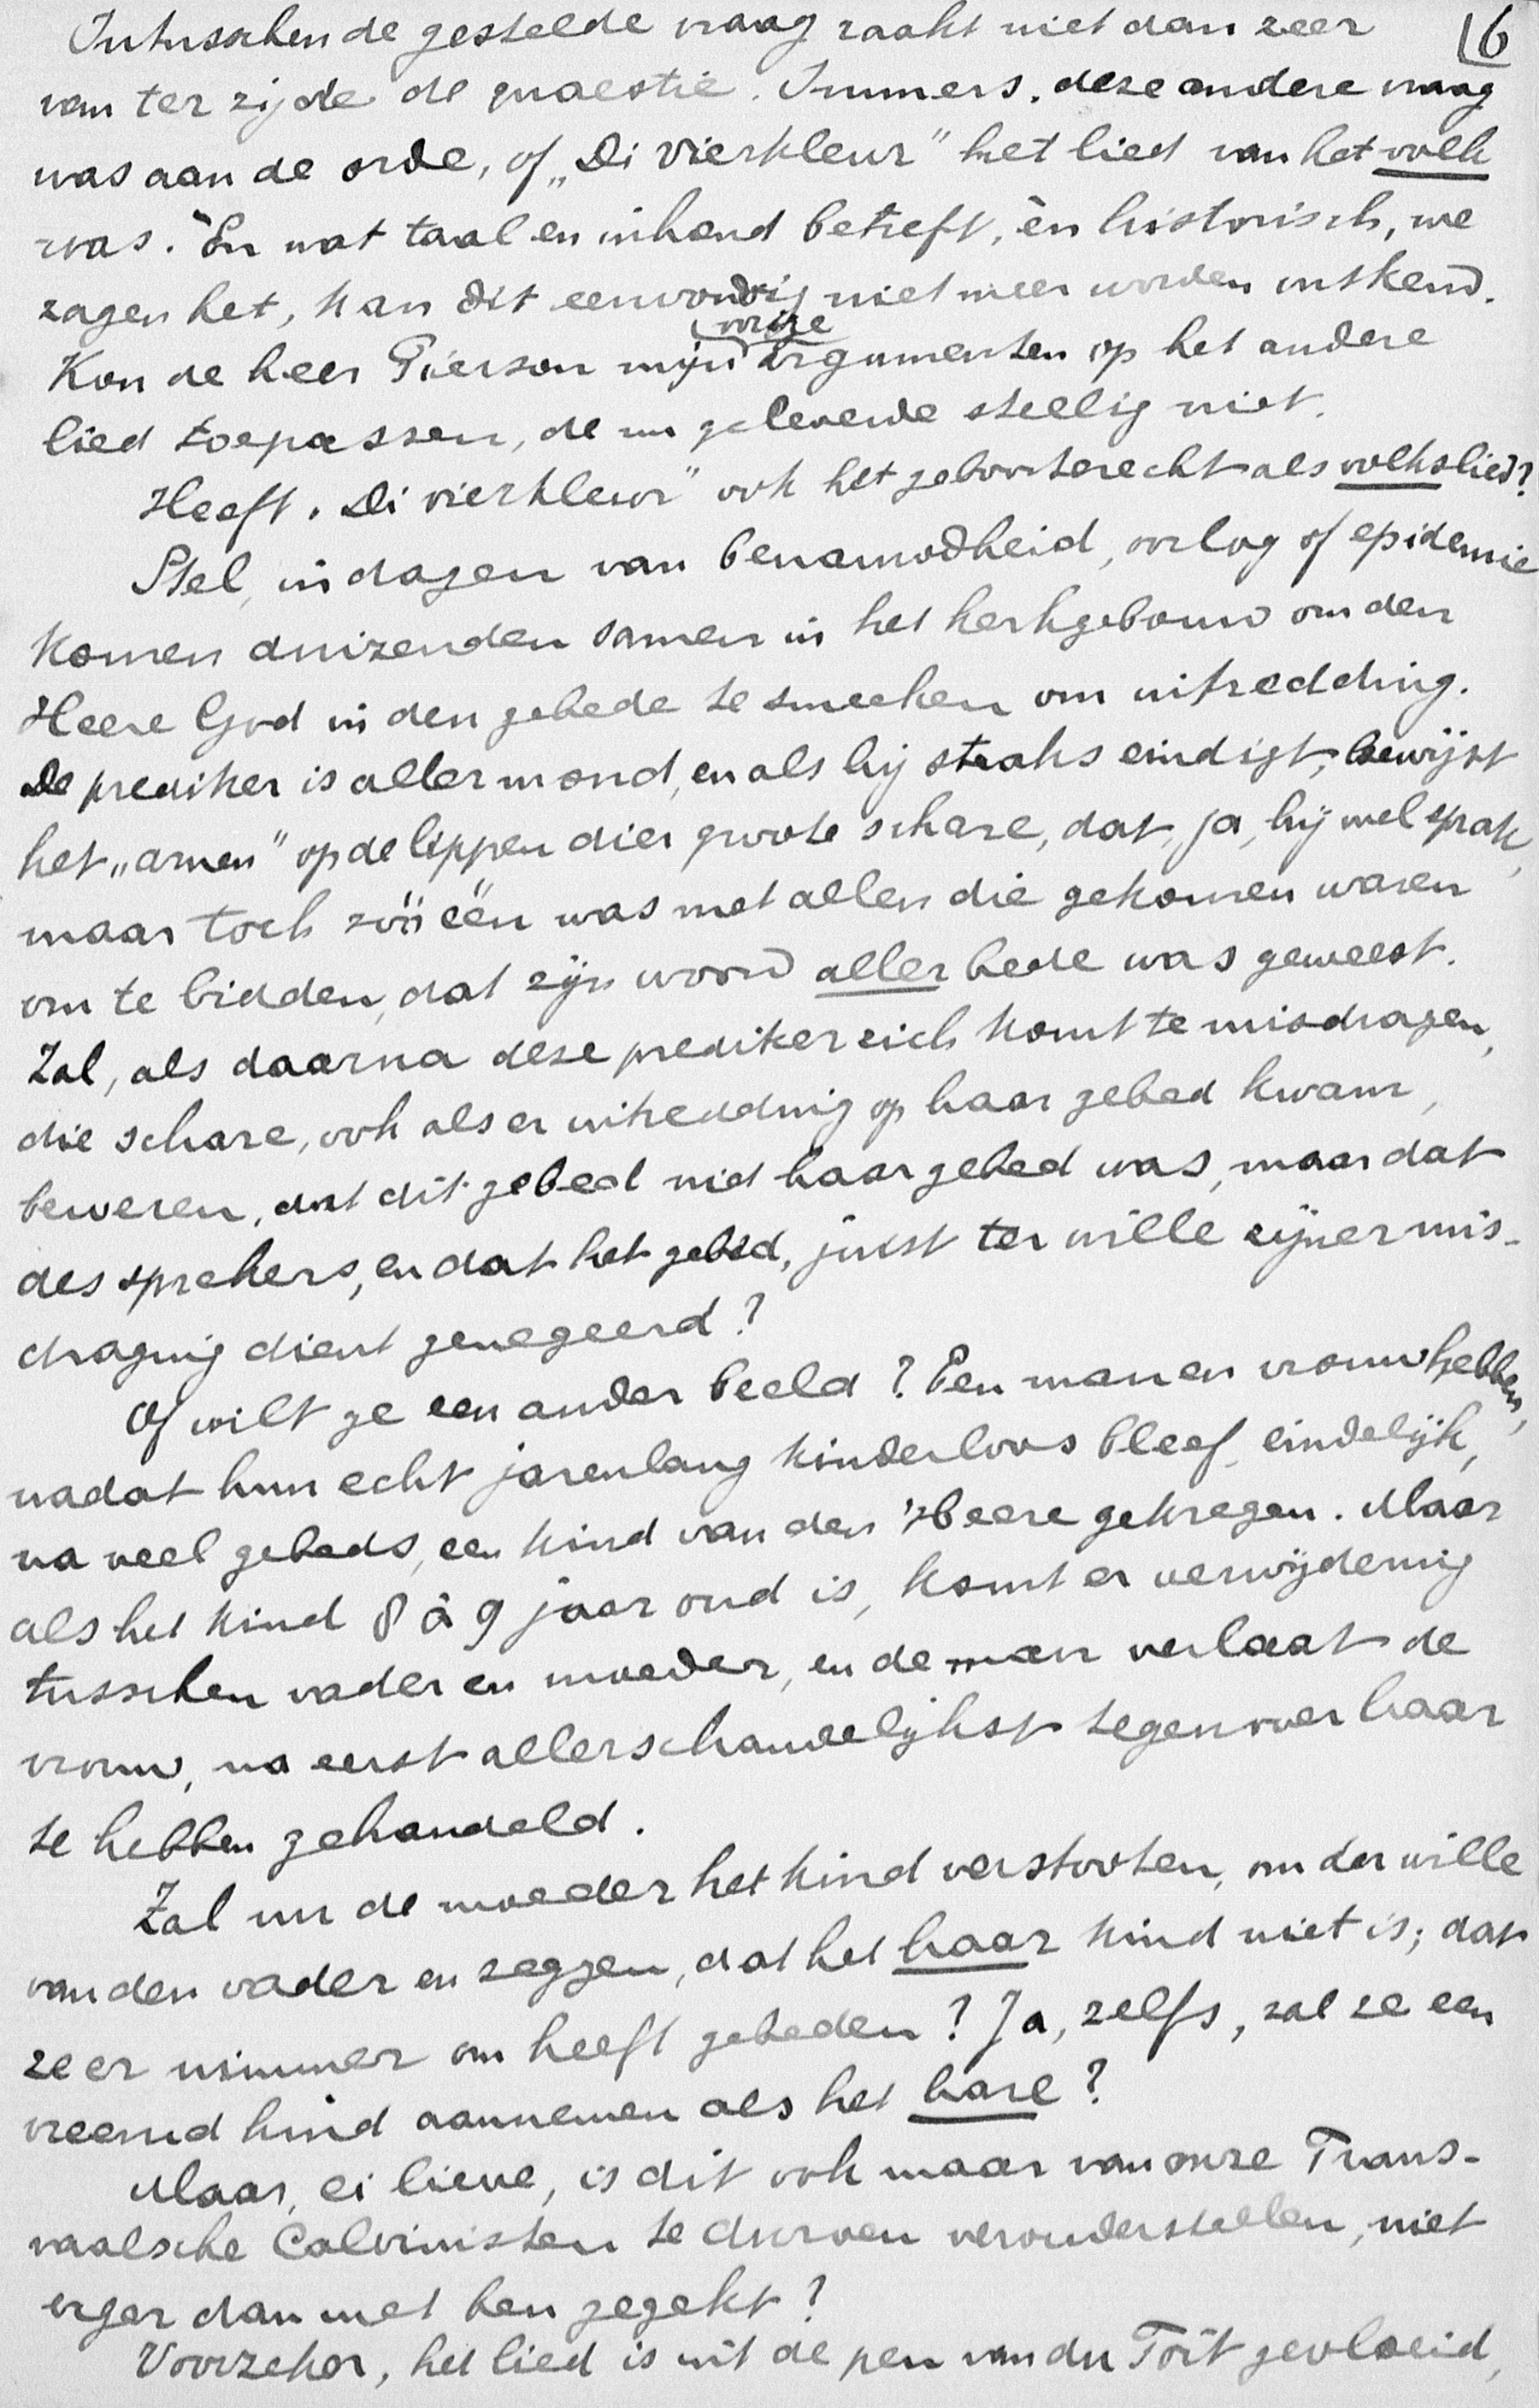 16
Intusschen de gestelde vraag raakt niet dan zeer
van ter zijde de quaestie. Immers, deze andere vraag
was aan de orde, of „Di Vierkleur" het lied van het volk
was. Èn wat taal en inhoud betreft, èn historisch, we
zagen het, kan dit eenvoudig niet meer worden ontkend.
Kon de heer Pierson mijn vorige argumenten op het andere
lied toepassen, de nu geleverde stellig niet.
Heeft „Di vierkleur" ook het geboorterecht als volkslied?
Stel, in dagen van benauwdheid, oorlog of epidemie
komen duizenden samen in het kerkgebouw om den
Heere God in den gebede te smeeken om uitredding.
De prediker is aller mond, en als hij straks eindigt, bewijst
het „amen" op de lippen dier groote schare, dat, ja, hij wel sprak,
maar toch zóó één was met allen die gekomen waren
om te bidden, dat zijn woord aller bede was geweest.
Zal, als daarna deze prediker zich komt te misdragen,
die schare, ook als er uitredding op haar gebed kwam,
beweren, dat dit gebed niet haar gebed was, maar dat
des sprekers, en dat het gebed, juist ter wille zijner mis-
draging dient genegeerd?
Of wilt ge een ander beeld? Een man en vrouw hebben,
nadat hun echt jarenlang kinderloos bleef, eindelijk,
na veel gebeds, een kind van den Heere gekregen. Maar
als het kind 8 à 9 jaar oud is, komt er verwijdering
tusschen vader en moeder, en de man verlaat de
vrouw, na eerst allerschandelijkst tegenover haar
te hebben gehandeld.
Zal nu de moeder het kind verstooten, om der wille
van den vader en zeggen, dat het haar kind niet is; dat
ze er nimmer om heeft gebeden? Ja, zelfs, zal ze een
vreemd kind aannemen als het hare?
Maar, ei lieve, is dit ook maar van onze Trans-
vaalsche Calvinisten te durven veronderstellen, niet
erger dan met hen gegekt?
Voorzeker, het lied is uit de pen van du Toit gevloeid,